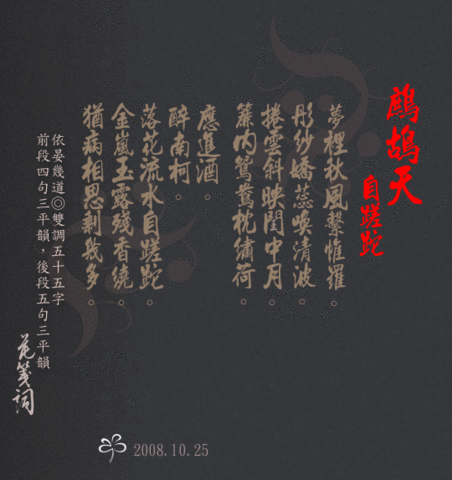 鷓鴣天
自蹉跎
夢裡秋風繫惟羅。
彤紗嬌蕊喚清波。
捲雲斜映閨中月。
簾內鴛鴦枕繡荷。
應進酒。
醉南柯。
落花流水自蹉跎。
金嵐玉露殘香繞
猶病相思剩幾多。
依晏幾道◎雙調五十五字
前段四句三平韻，後段五句三平韻
花箋詞
2008.10.25